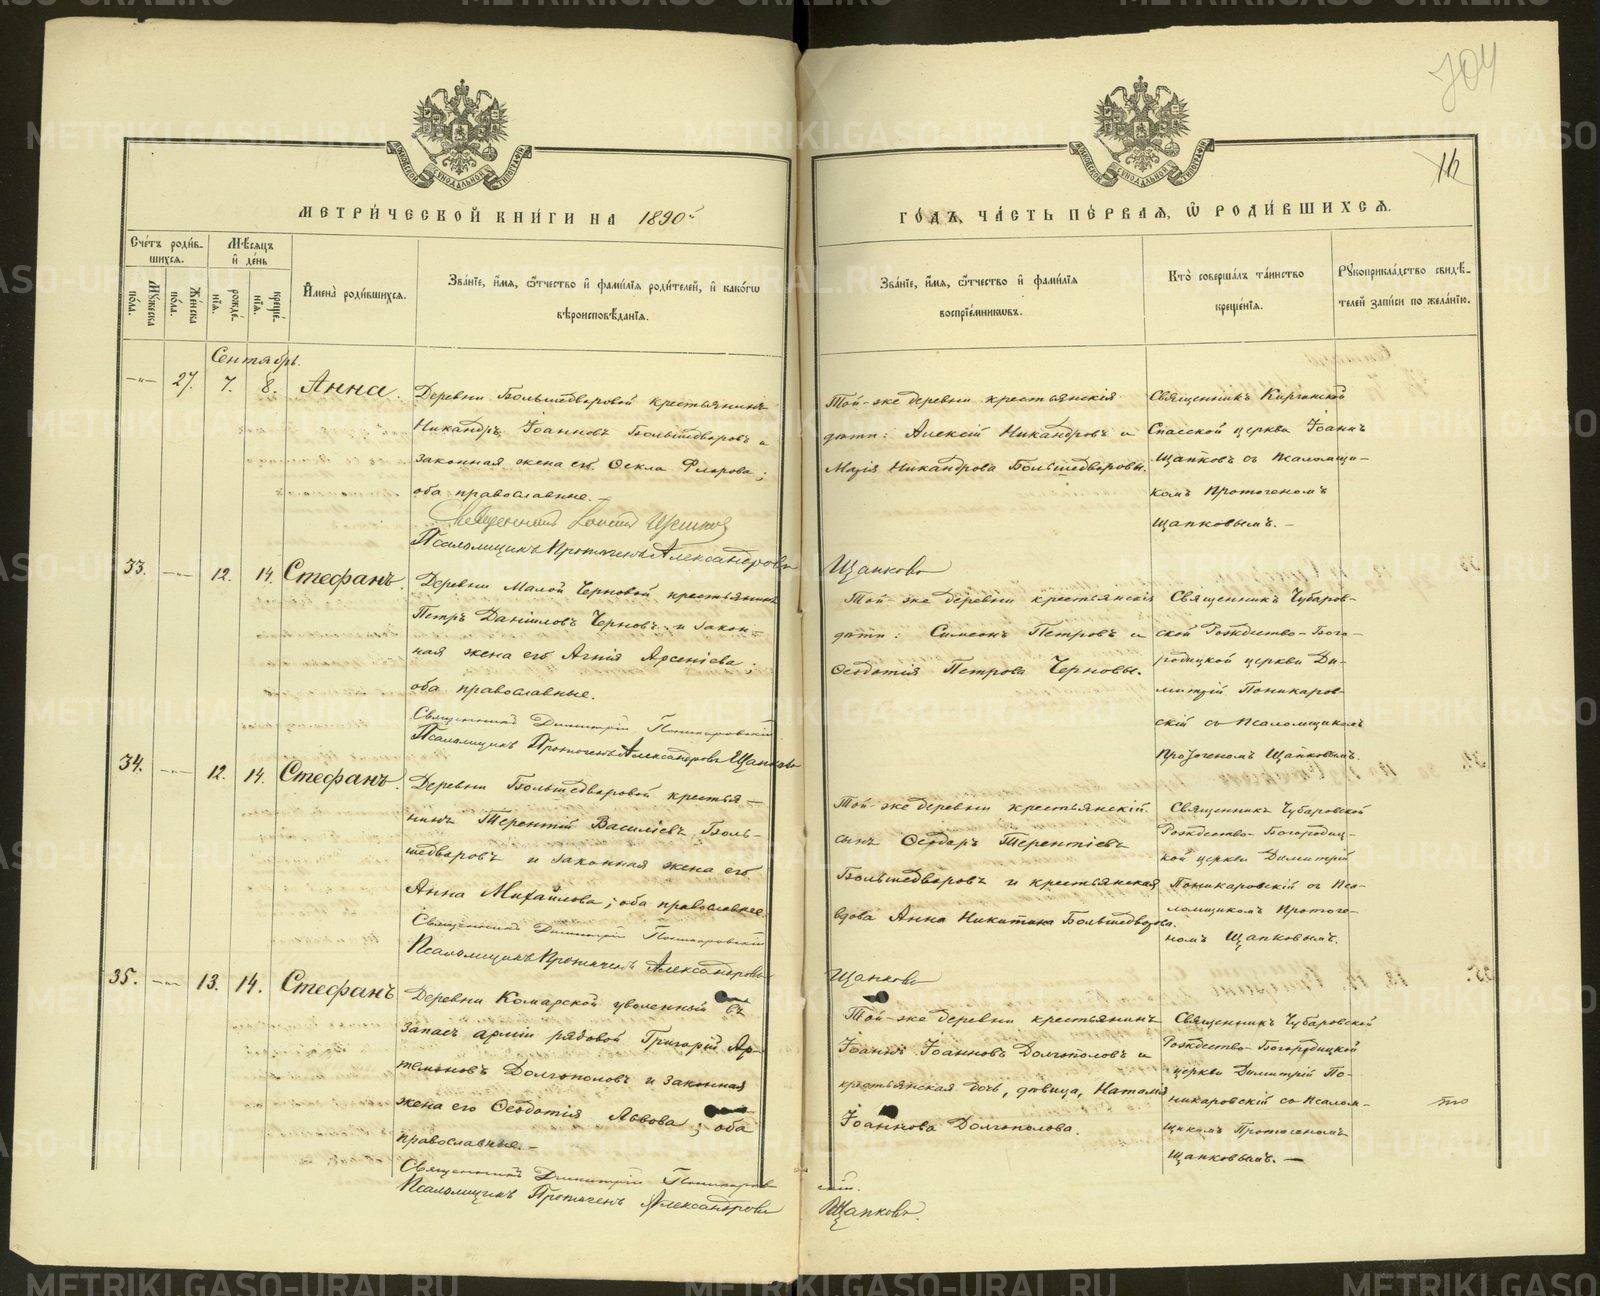 704
16
МЕТРИ́ЧЕСКОЙ КНИ́ГИ НА 1890й
ГО́ДЪ, ЧА́СТЬ ПЕ́РВАЯ, Ѡ РОДИ́ВШИХСЯ.
Сче́тъ роди́в-
шихся.
Мѣ́сяцъ
и҆ де́нь
Мꙋжеска
по́ла.
Же́нска
по́ла.
рожде́-
нїя.
креще́-
нїя.
И҆мена̀ роди́вшихся.
Зва́нїе, и҆́мя, ѻ҆́тчество и҆ фами́лїя роди́телей, и҆ како́гѡ
вѣроисповѣ́данїя.
Зва́нїе, и҆́мя, ѻ҆́тчество и҆ фами́лїя
воспрїе́мникѡвъ.
Кто̀ соверша́лъ та́инство
креще́нїя.
Рꙋкоприкла́дство свидѣ́-
телей за́писи по жела́нїю.
Сентябрь.
-"- 27. 7. 8. Анна.
Деревни Большедворовой крестьянинъ
Никандръ Іоанновъ Большедворовъ и
законная жена его Ѳекла Флорова;
оба православные.
Священникъ Іоаннъ
Псаломщикъ Протогенъ Александровъ
Той-же деревни крестьянскія
дѣти: Алексій Никандровъ и
Марія Никандрова Большедворовы.
Щапковъ
Священникъ Киргинской
Спасской церкви Іоаннъ
Щапковъ съ псаломщи-
комъ Протогеномъ
Щапковымъ.-
33. -"- 12. 14. Стефанъ.
Деревни Малой Черновой крестьянинъ
Петръ Даніиловъ Черновъ и закон-
ная жена его Агнія Арсеніева;
оба православные.
Священникъ Димитрій Поникаровскій
Псаломщикъ Протогенъ Александровъ Щапковъ
Той-же деревни крестьянскія
дѣти: Симеонъ Петровъ и
Ѳеодотія Петрова Черновы.
Священникъ Чубаров-
ской Рождество-Бого-
родицкой церкви Ди-
митрій Поникаров-
скій съ псаломщикомъ
Протогеномъ Щапковымъ.
34. -"- 12. 14. Стефанъ.
Деревни Большедворовой крестья-
нинъ Терентій Василіевъ Боль-
шедворовъ и законная жена его
Анна Михайлова; оба православные.
Священникъ Димитрій Поникаровскій
Псаломщикъ Протогенъ Александровъ
Той-же деревни крестьянскій
сынъ Ѳеодоръ Терентіевъ
Большедворовъ и крестьянская
вдова Анна Никитина Большедворова.
Щапковъ
Священникъ Чубаровской
Рождество-Богородиц-
кой церкви Димитрій
Поникаровскій съ пса-
ломщикомъ Протоге-
номъ Щапковымъ.
35. -"- 13. 14. Стефанъ
Деревни Комарской уволенный въ
запасъ арміи рядовой Григорій Ар-
темоновъ Долгополовъ и законная
жена его Ѳеодотія Львова; оба
православные.-
Священникъ Димитрій Поникаров
Псаломщикъ Протогенъ Александровъ
Той-же деревни крестьянинъ
Іоаннъ Іоанновъ Долгополовъ и
крестьянская дочь, дѣвица, Наталія
Іоаннова Долгополова.
скій.
Щапковъ.
Священникъ Чубаровской
Рождество-Богородицкой
церкви Димитрій По-
никаровскій со псалом-
щикомъ Протогеномъ
Щапковымъ.-
METRIKI.GASO-URAL.RU